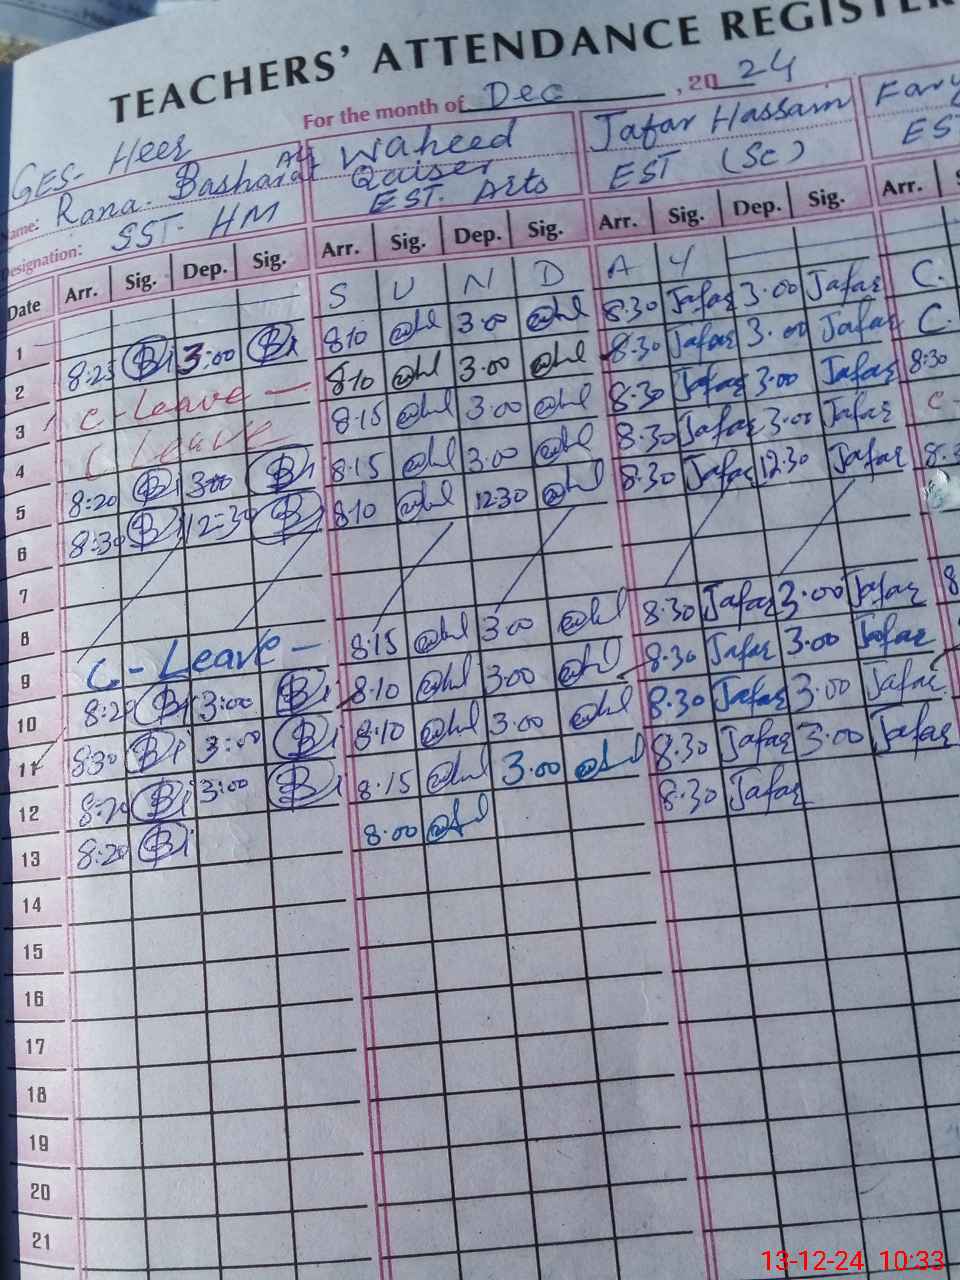 TEACHERS' ATTENDANCE REGISTER
For the month of Dec , 20 24
GES- Heer
Name: Rana. Basharat Ali Waheed Qaiser Jafar Hassain
Designation: SST- HM EST. Arts EST (Sc) EST
Date Arr. Sig. Dep. Sig. Arr. Sig. Dep. Sig. Arr. Sig. Dep. Sig. Arr.
1 S U N D A Y
2 8:25 3:00 8:10 3:00 8:30 Jafar 3:00 Jafar C.
3 C-Leave - 8:10 3:00 8:30 Jafar 3:00 Jafar C.
4 C Leave 8:15 3:00 8:30 Jafar 3:00 Jafar 8:30
5 8:20 3:00 8:15 3:00 8:30 Jafar 3:00 Jafar C-
6 8:30 12=30 8:10 12:30 8:30 Jafar 12:30 Jafar
7
8
9 C - Leave - 8:15 3:00 8:30 Jafar 3:00 Jafar
10 8:20 3:00 8:10 3:00 8:30 Jafar 3:00 Jafar
11 8:30 3:00 8:10 3:00 8:30 Jafar 3:00 Jafar
12 8:20 3:00 8:15 3:00 8:30 Jafar 3:00 Jafar
13 8:20 8:00 8:30 Jafar
14
15
16
17
18
19
20
21
13-12-24 10:33